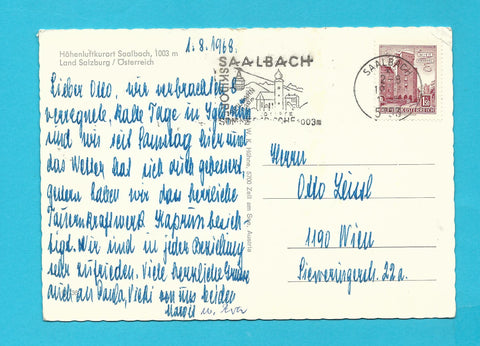 Höhenluftkurort Saalbach, 1003 m
Land Salzburg / Österreich
1.8.1968
Lieber Otto, wir verbrachten
verregnete, kalte Tage in
und wir seit Samstag hier sind
das Wetter hat sich auch gebessert,
gestern haben wir das herrliche
Tauernkraftwerk Kaprun besich-
tigt. Wir sind in jeder Beziehung
sehr zufrieden. Viele herzliche Grüße
auch an Paula, von uns beiden
u. Eva
SAALBACH
1003m
SAALBACH
ÖSTERREICH
Herrn
Otto
1190 Wien
Sieveringerstr. 22a.
5700 Zell am See, Austria